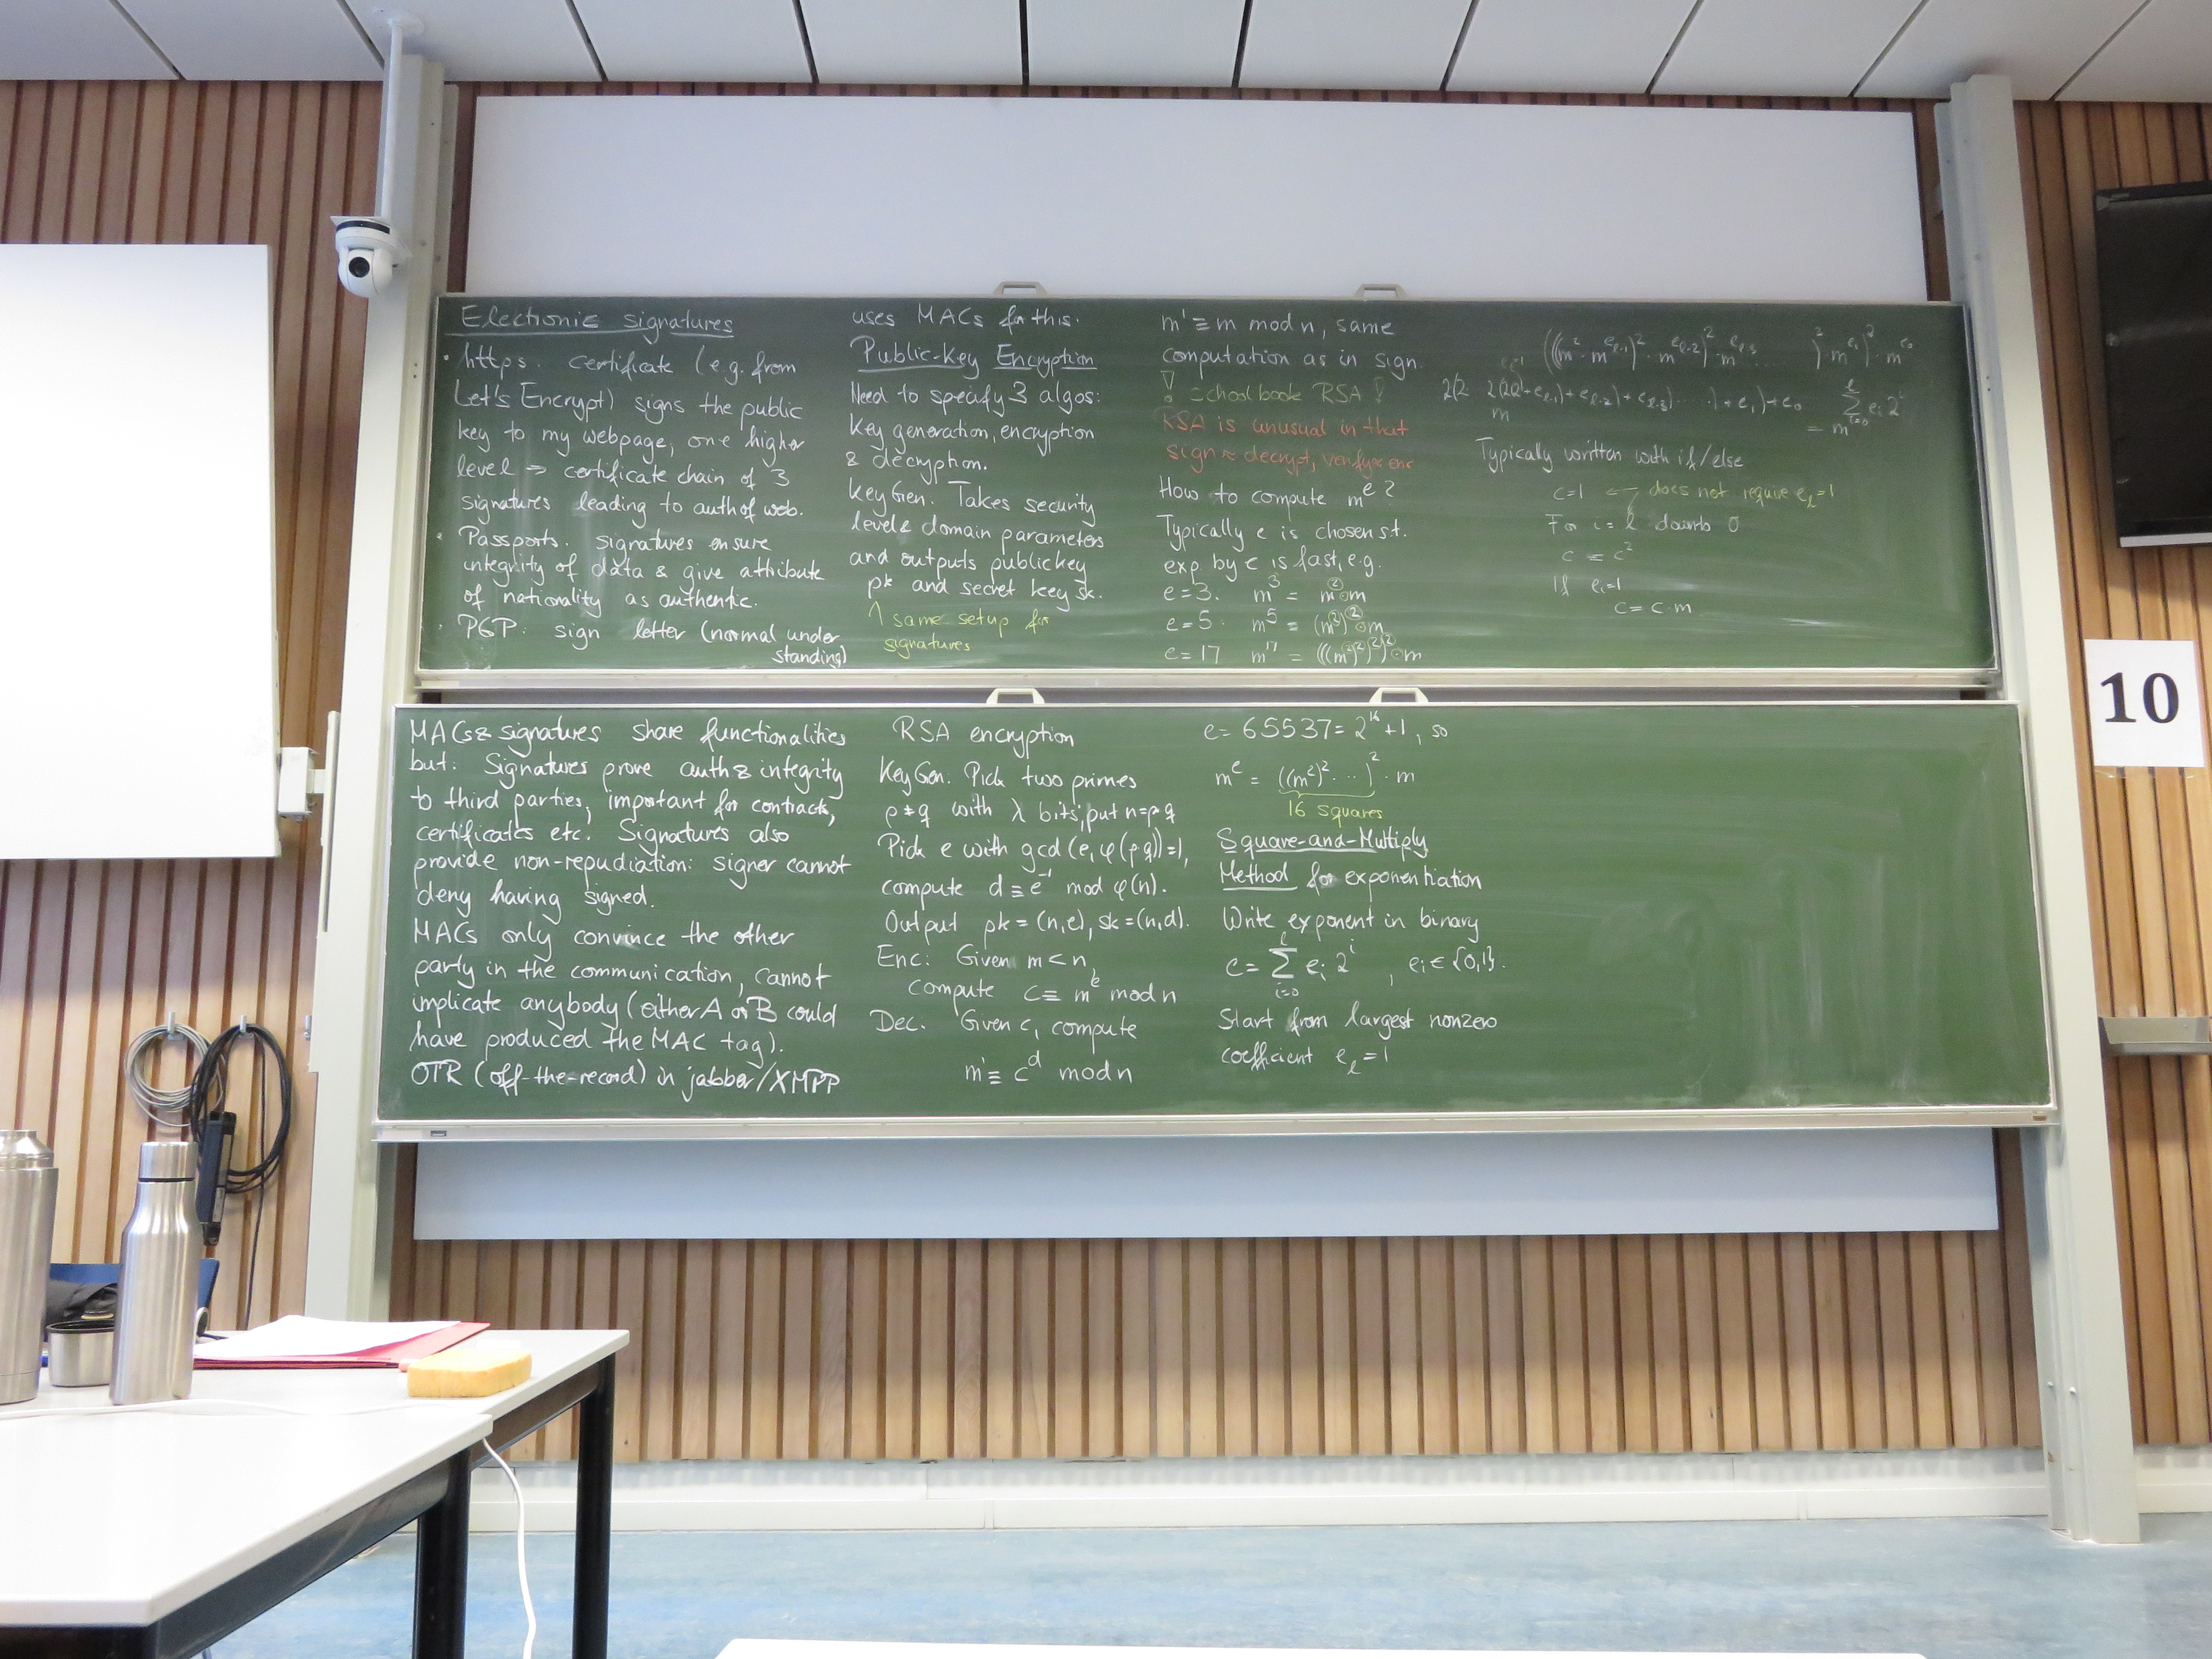 Electronic signatures
• https. certificate (e.g. from
Let's Encrypt) signs the public
key to my webpage, one higher
level ⇒ certificate chain of 3
signatures leading to auth of web.
• Passports. signatures ensure
integrity of data & give attribute
of nationality as authentic.
• PGP: sign letter (normal under
standing)
uses MACs for this.
Public-Key Encryption
Need to specify 3 algos:
key generation, encryption
& decryption.
KeyGen. Takes security
level & domain parameters
and outputs public key
pk and secret key sk.
↑ same setup for
signatures
m' ≡ m mod n, same
computation as in sign.
! schoolbook RSA !
RSA is unusual in that
sign ≈ decrypt, verify ≈ enc
How to compute m^e ?
Typically e is chosen s.t.
exp. by e is fast, e.g.
e=3. m^3 = m^2·m
e=5. m^5 = (m^2)^2·m
e=17 m^17 = (((m^2)^2)^2)^2·m
(((m^2·m^{e_{ℓ-1}})^2·m^{e_{ℓ-2}})^2·m^{e_{ℓ-3}} ... )^2·m^{e_1})^2·m^{e_0}
2(2(2+e_{ℓ-1})+e_{ℓ-2})+e_{ℓ-3}) ... )+e_1)+e_0
m
= m^{∑_{i=0}^{ℓ} e_i 2^i}
Typically written with if/else
c=1 ← does not require e_ℓ=1
For i = ℓ down to 0
c = c^2
If e_i=1
c = c·m
MACs & signatures share functionalities
but: Signatures prove auth & integrity
to third parties, important for contracts,
certificates etc. Signatures also
provide non-repudiation: signer cannot
deny having signed.
MACs only convince the other
party in the communication, cannot
implicate anybody (either A or B could
have produced the MAC tag).
OTR (off-the-record) in jabber/XMPP
RSA encryption
KeyGen. Pick two primes
p≠q with λ bits, put n=p·q
Pick e with gcd(e, φ(p·q))=1,
compute d ≡ e^{-1} mod φ(n).
Output pk=(n,e), sk=(n,d).
Enc: Given m<n
compute c ≡ m^e mod n
Dec. Given c, compute
m' ≡ c^d mod n
e = 65537 = 2^16+1, so
m^e = ((m^2)^2 ... )^2 · m
16 squares
Square-and-Multiply
Method for exponentiation
Write exponent in binary
e = ∑_{i=0}^{ℓ} e_i 2^i , e_i ∈ {0,1}.
Start from largest nonzero
coefficient e_ℓ=1
10